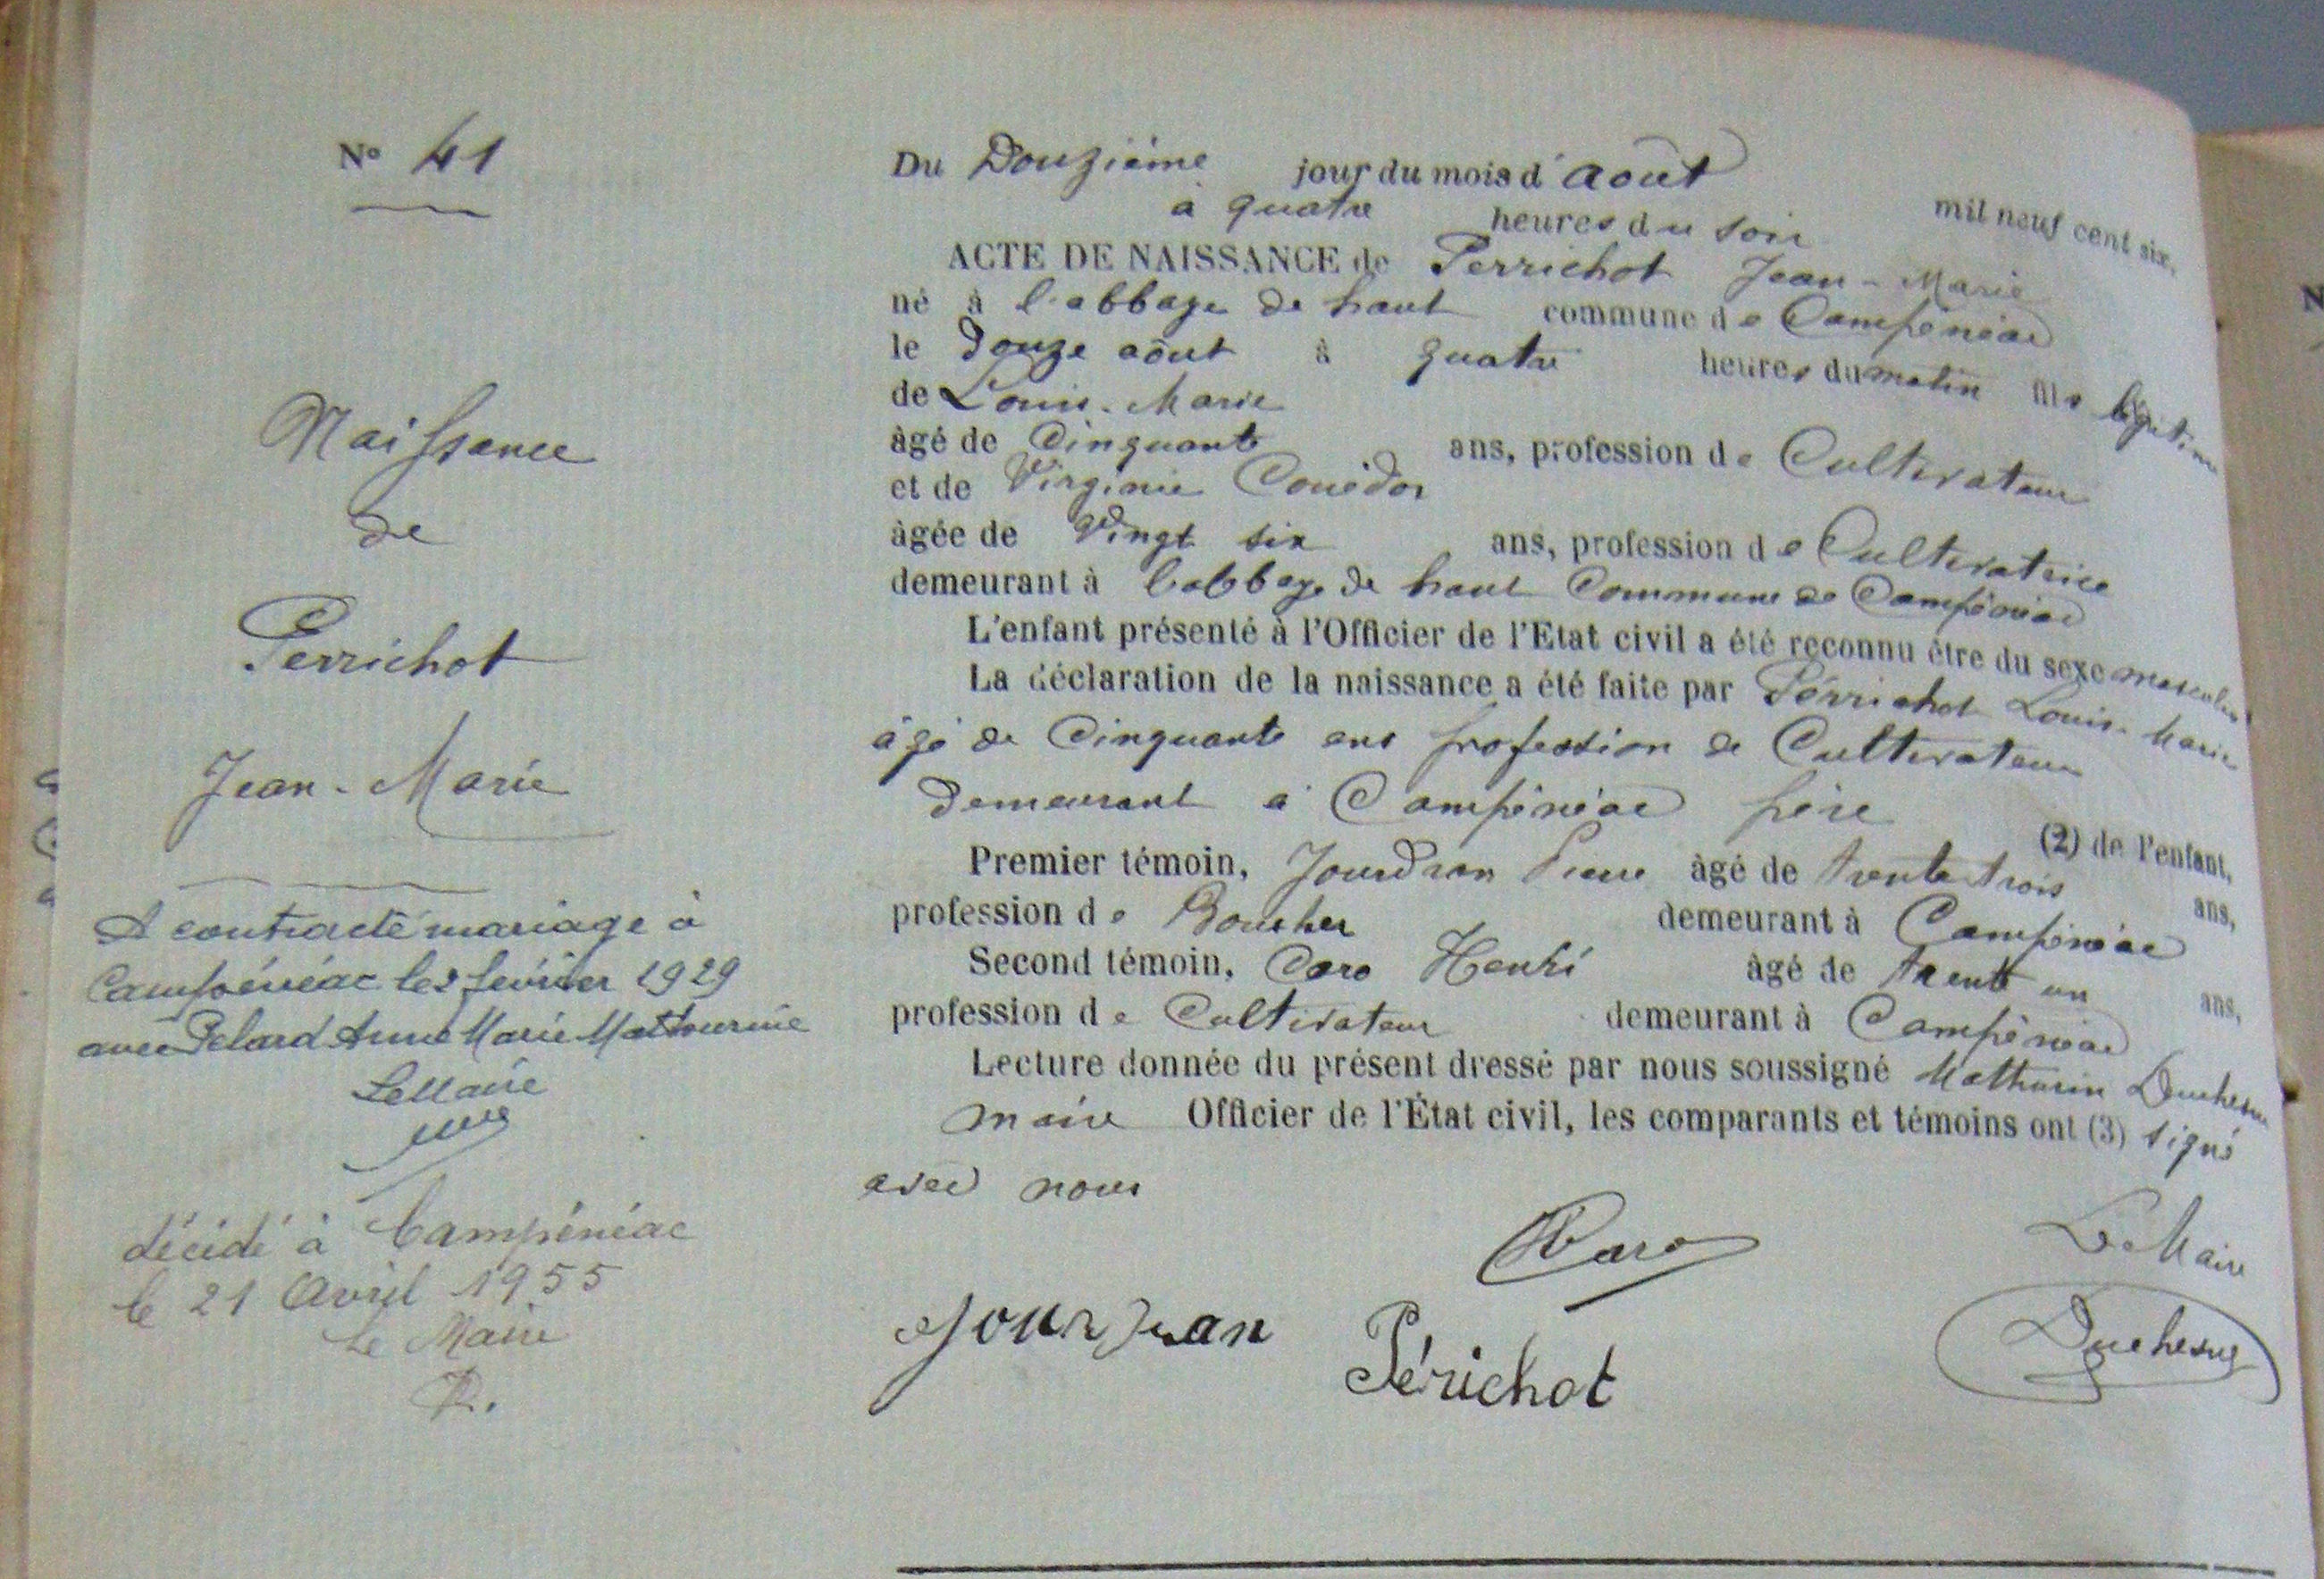 N° 41
Naissance
de
Perrichot
Jean-Marie
A contracté mariage à
Campénéac le 2 février 1929
avec Pelard Anne Marie Mathurine
Le Maire
décédé à Campénéac
le 21 Avril 1955
Le Maire
Du Douzième jour du mois d'août mil neuf cent six,
à quatre heures du soir
ACTE DE NAISSANCE de Perrichot Jean-Marie
né à l'abbaye de haut commune de Campénéac
le douze août à quatre heures du matin fils légitime
de Louis-Marie
âgé de Cinquante ans, profession de Cultivateur
et de Virginie Couëdor
âgée de Vingt six ans, profession de Cultivatrice
demeurant à l'abbaye de haut Commune de Campénéac
L'enfant présenté à l'Officier de l'Etat civil a été reconnu être du sexe masculin
La déclaration de la naissance a été faite par Pérrichot Louis-Marie
âgé de Cinquante ans profession de Cultivateur
demeurant à Campénéac père (2) de l'enfant,
Premier témoin, Jourdran Pierre âgé de trente trois ans,
profession de Boucher demeurant à Campénéac
Second témoin, Caro Henri âgé de trente un ans,
profession de Cultivateur demeurant à Campénéac
Lecture donnée du présent dressé par nous soussigné Mathurin Duchesne
maire Officier de l'État civil, les comparants et témoins ont (3) signé
avec nous
Caro Le Maire
Jourdran Périchot Duchesne